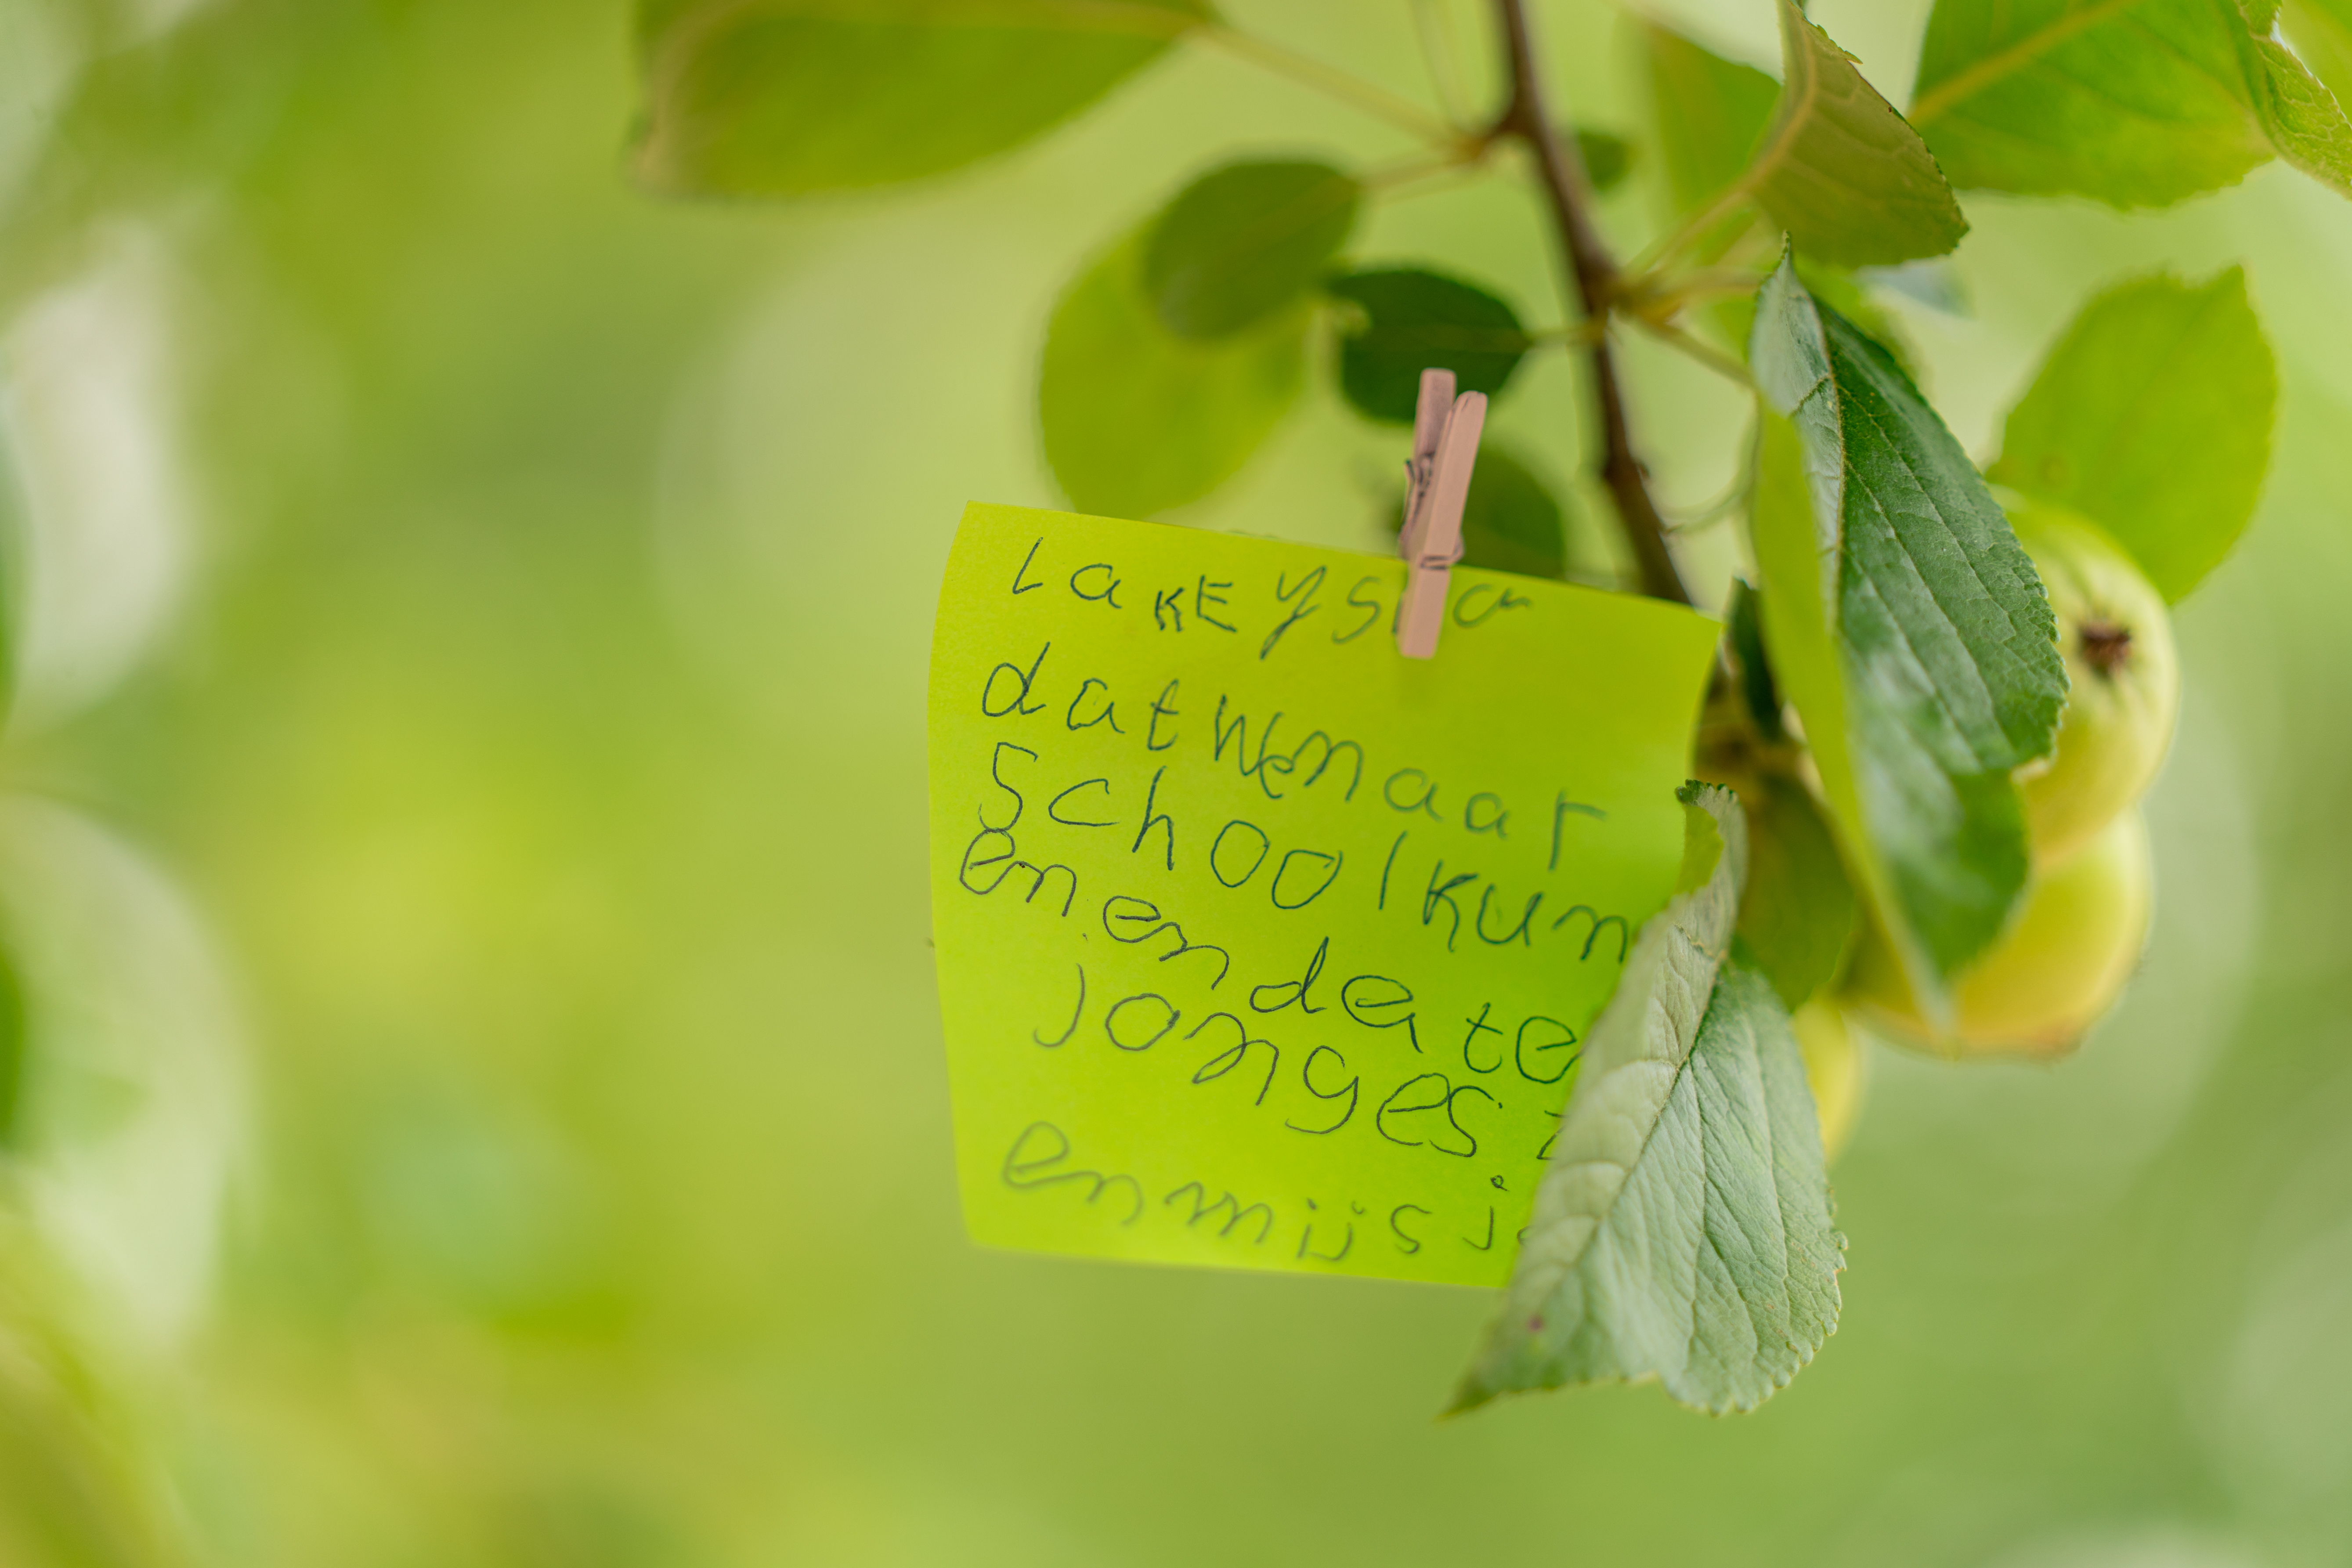 LaKEysia
dat We naar
School kun
en en de te
jonges z
en mijs je